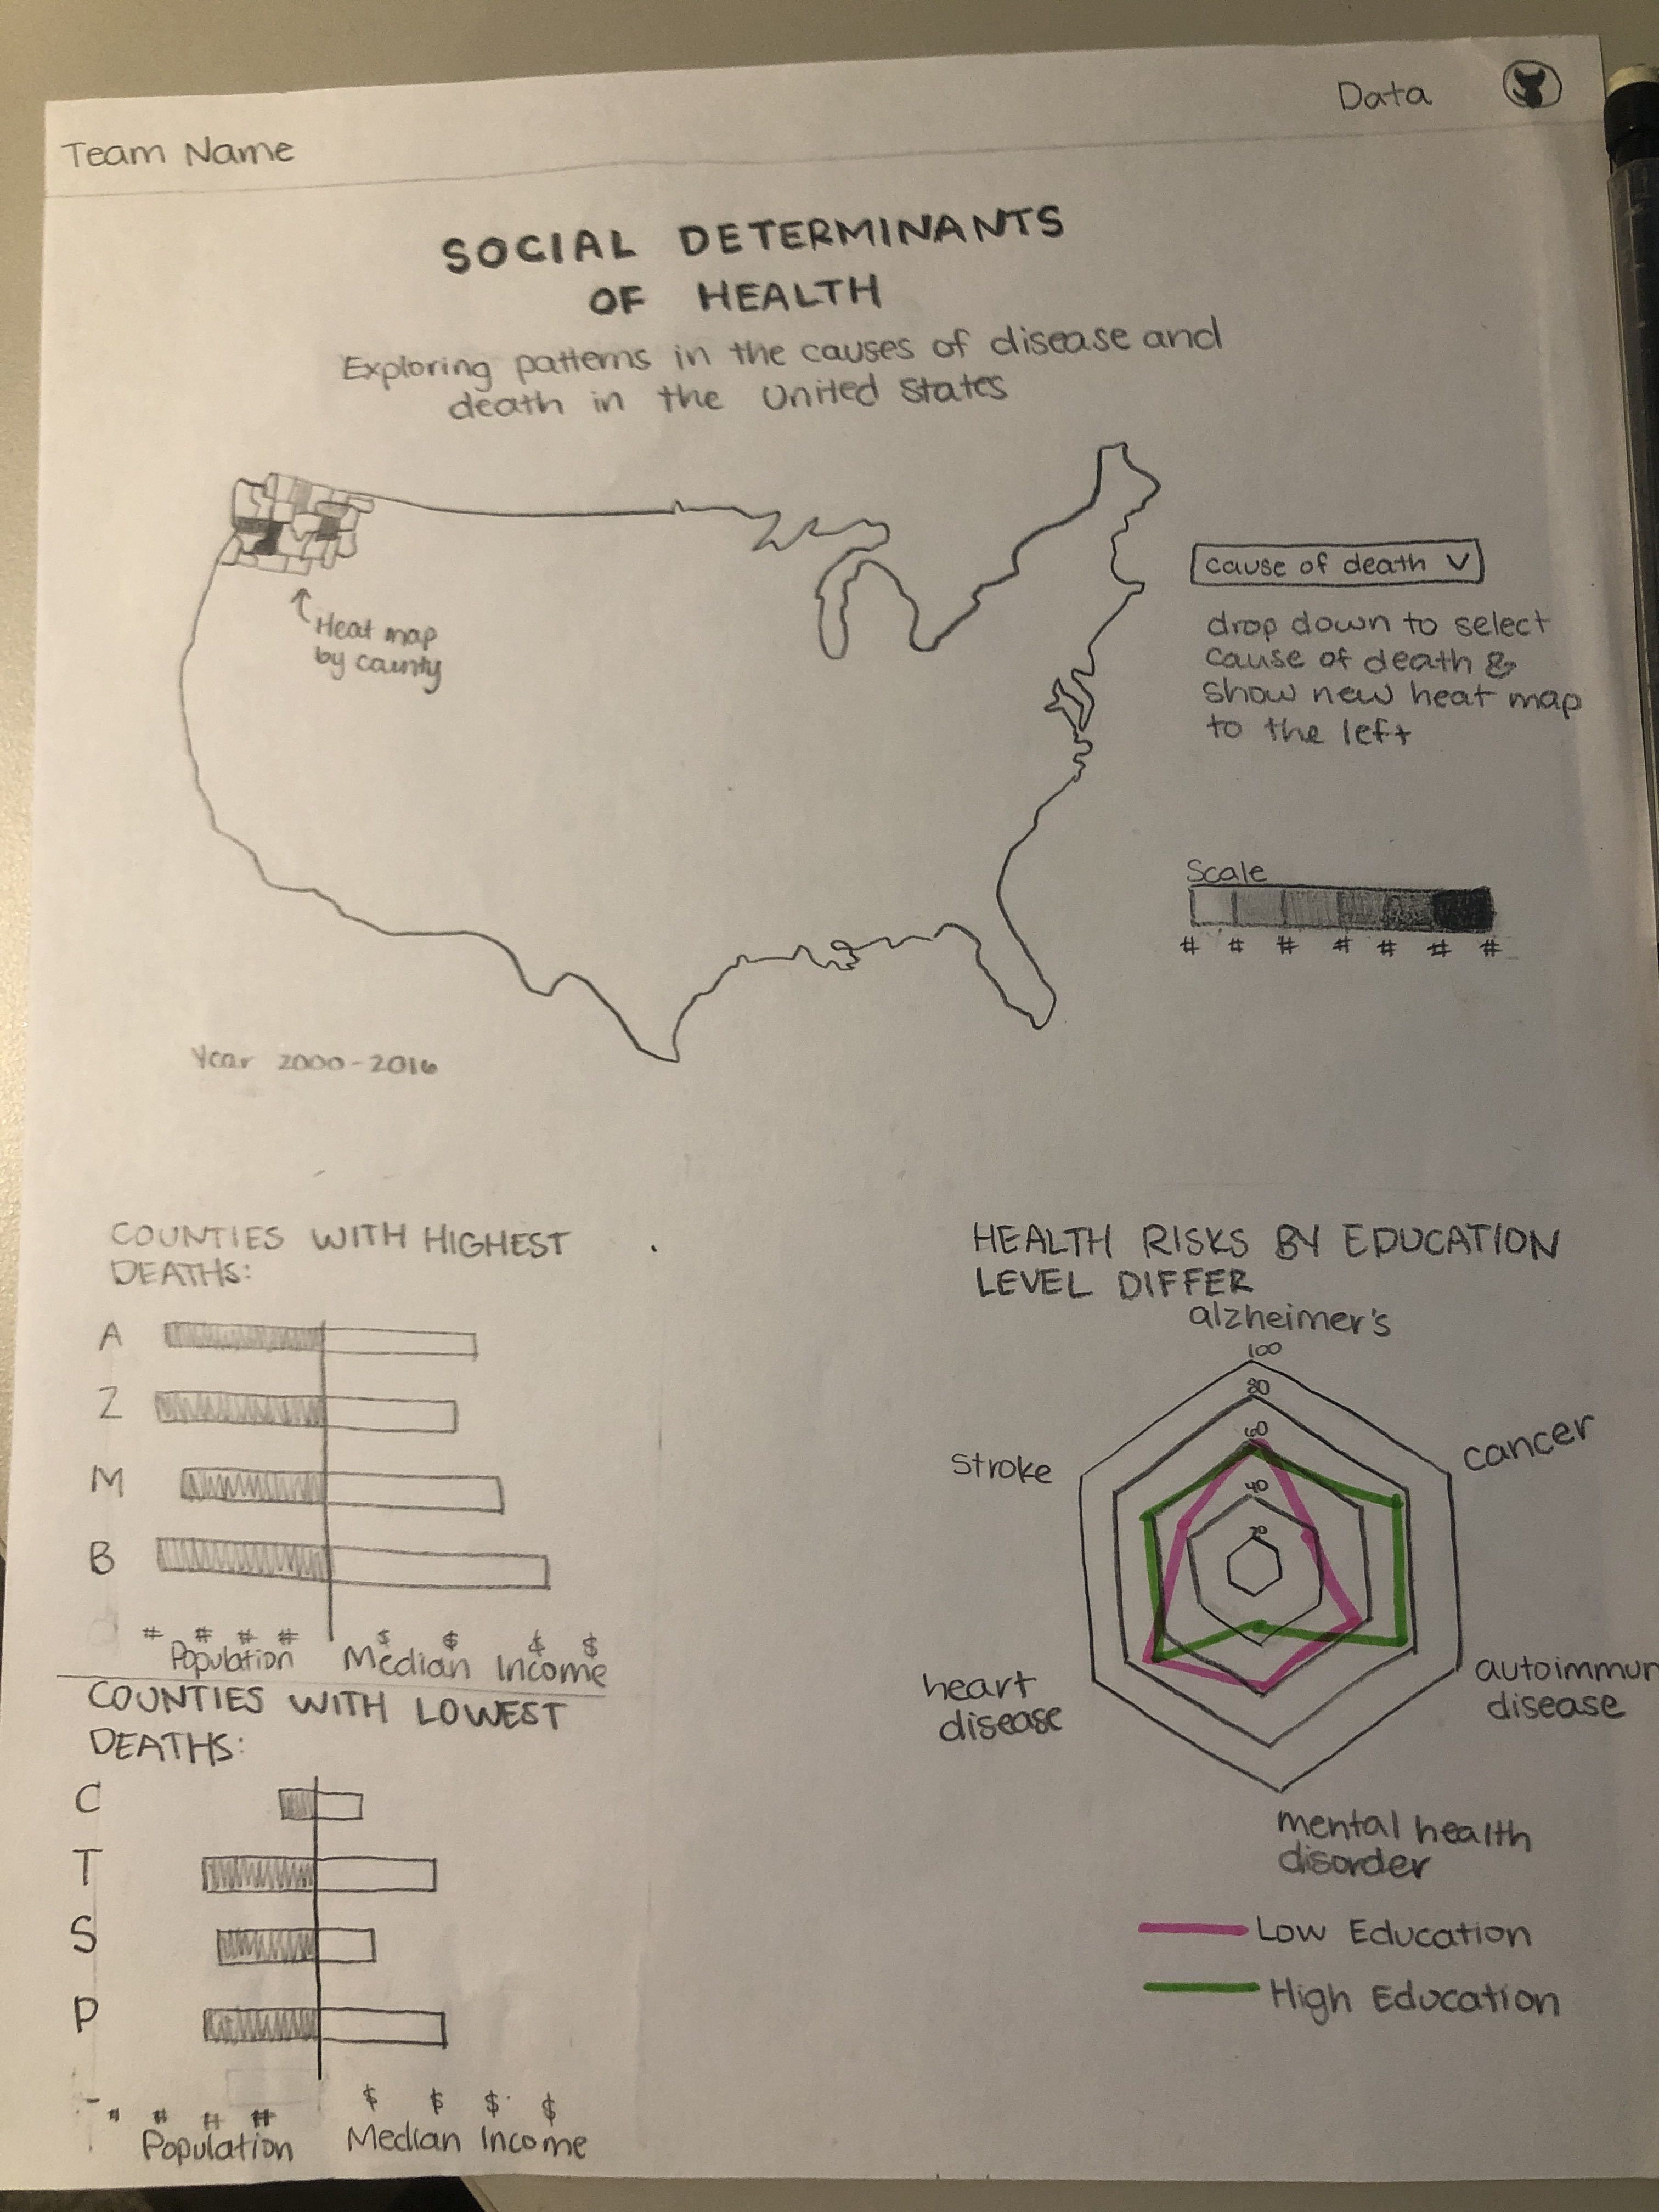 Team Name
Data
SOCIAL DETERMINANTS
OF HEALTH
Exploring patterns in the causes of disease and
death in the United States
Heat map
by county
cause of death V
drop down to select
cause of death &
show new heat map
to the left
Scale
# # # # # # #
Year 2000-2016
COUNTIES WITH HIGHEST
DEATHS:
A
Z
M
B
# # # #
$ $ $ $
Population
Median Income
COUNTIES WITH LOWEST
DEATHS:
C
T
S
P
# # # #
$ $ $ $
Population
Median Income
HEALTH RISKS BY EDUCATION
LEVEL DIFFER
alzheimer's
100
80
60
40
20
cancer
stroke
autoimmun
disease
heart
disease
mental health
disorder
Low Education
High Education